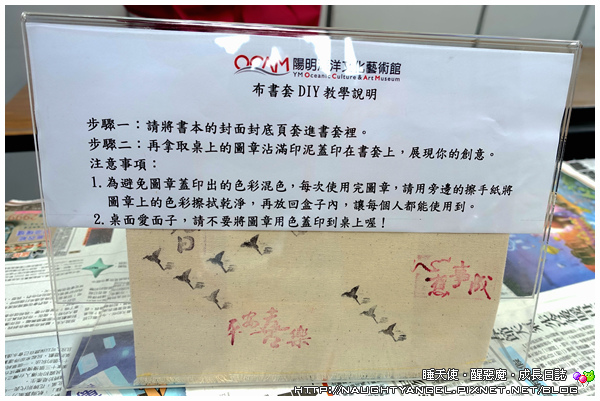 OCAM 陽明海洋文化藝術館
YM OCEANIC CULTURE & ART MUSEUM
布書套 DIY 教學說明
步驟一：請將書本的封面封底頁套進書套裡。
步驟二：再拿取桌上的圖章沾滿印泥蓋印在書套上，展現你的創意。
注意事項：
1. 為避免圖章蓋印出的色彩混色，每次使用完圖章，請用旁邊的擦手紙將
圖章上的色彩擦拭乾淨，再放回盒子內，讓每個人都能使用到。
2. 桌面愛面子，請不要將圖章用色蓋印到桌上喔！
事
樂
睡天使‧醒惡魔‧成長日誌
HTTP://NAUGHTYANGEL.PIXNET.NET/BLOG